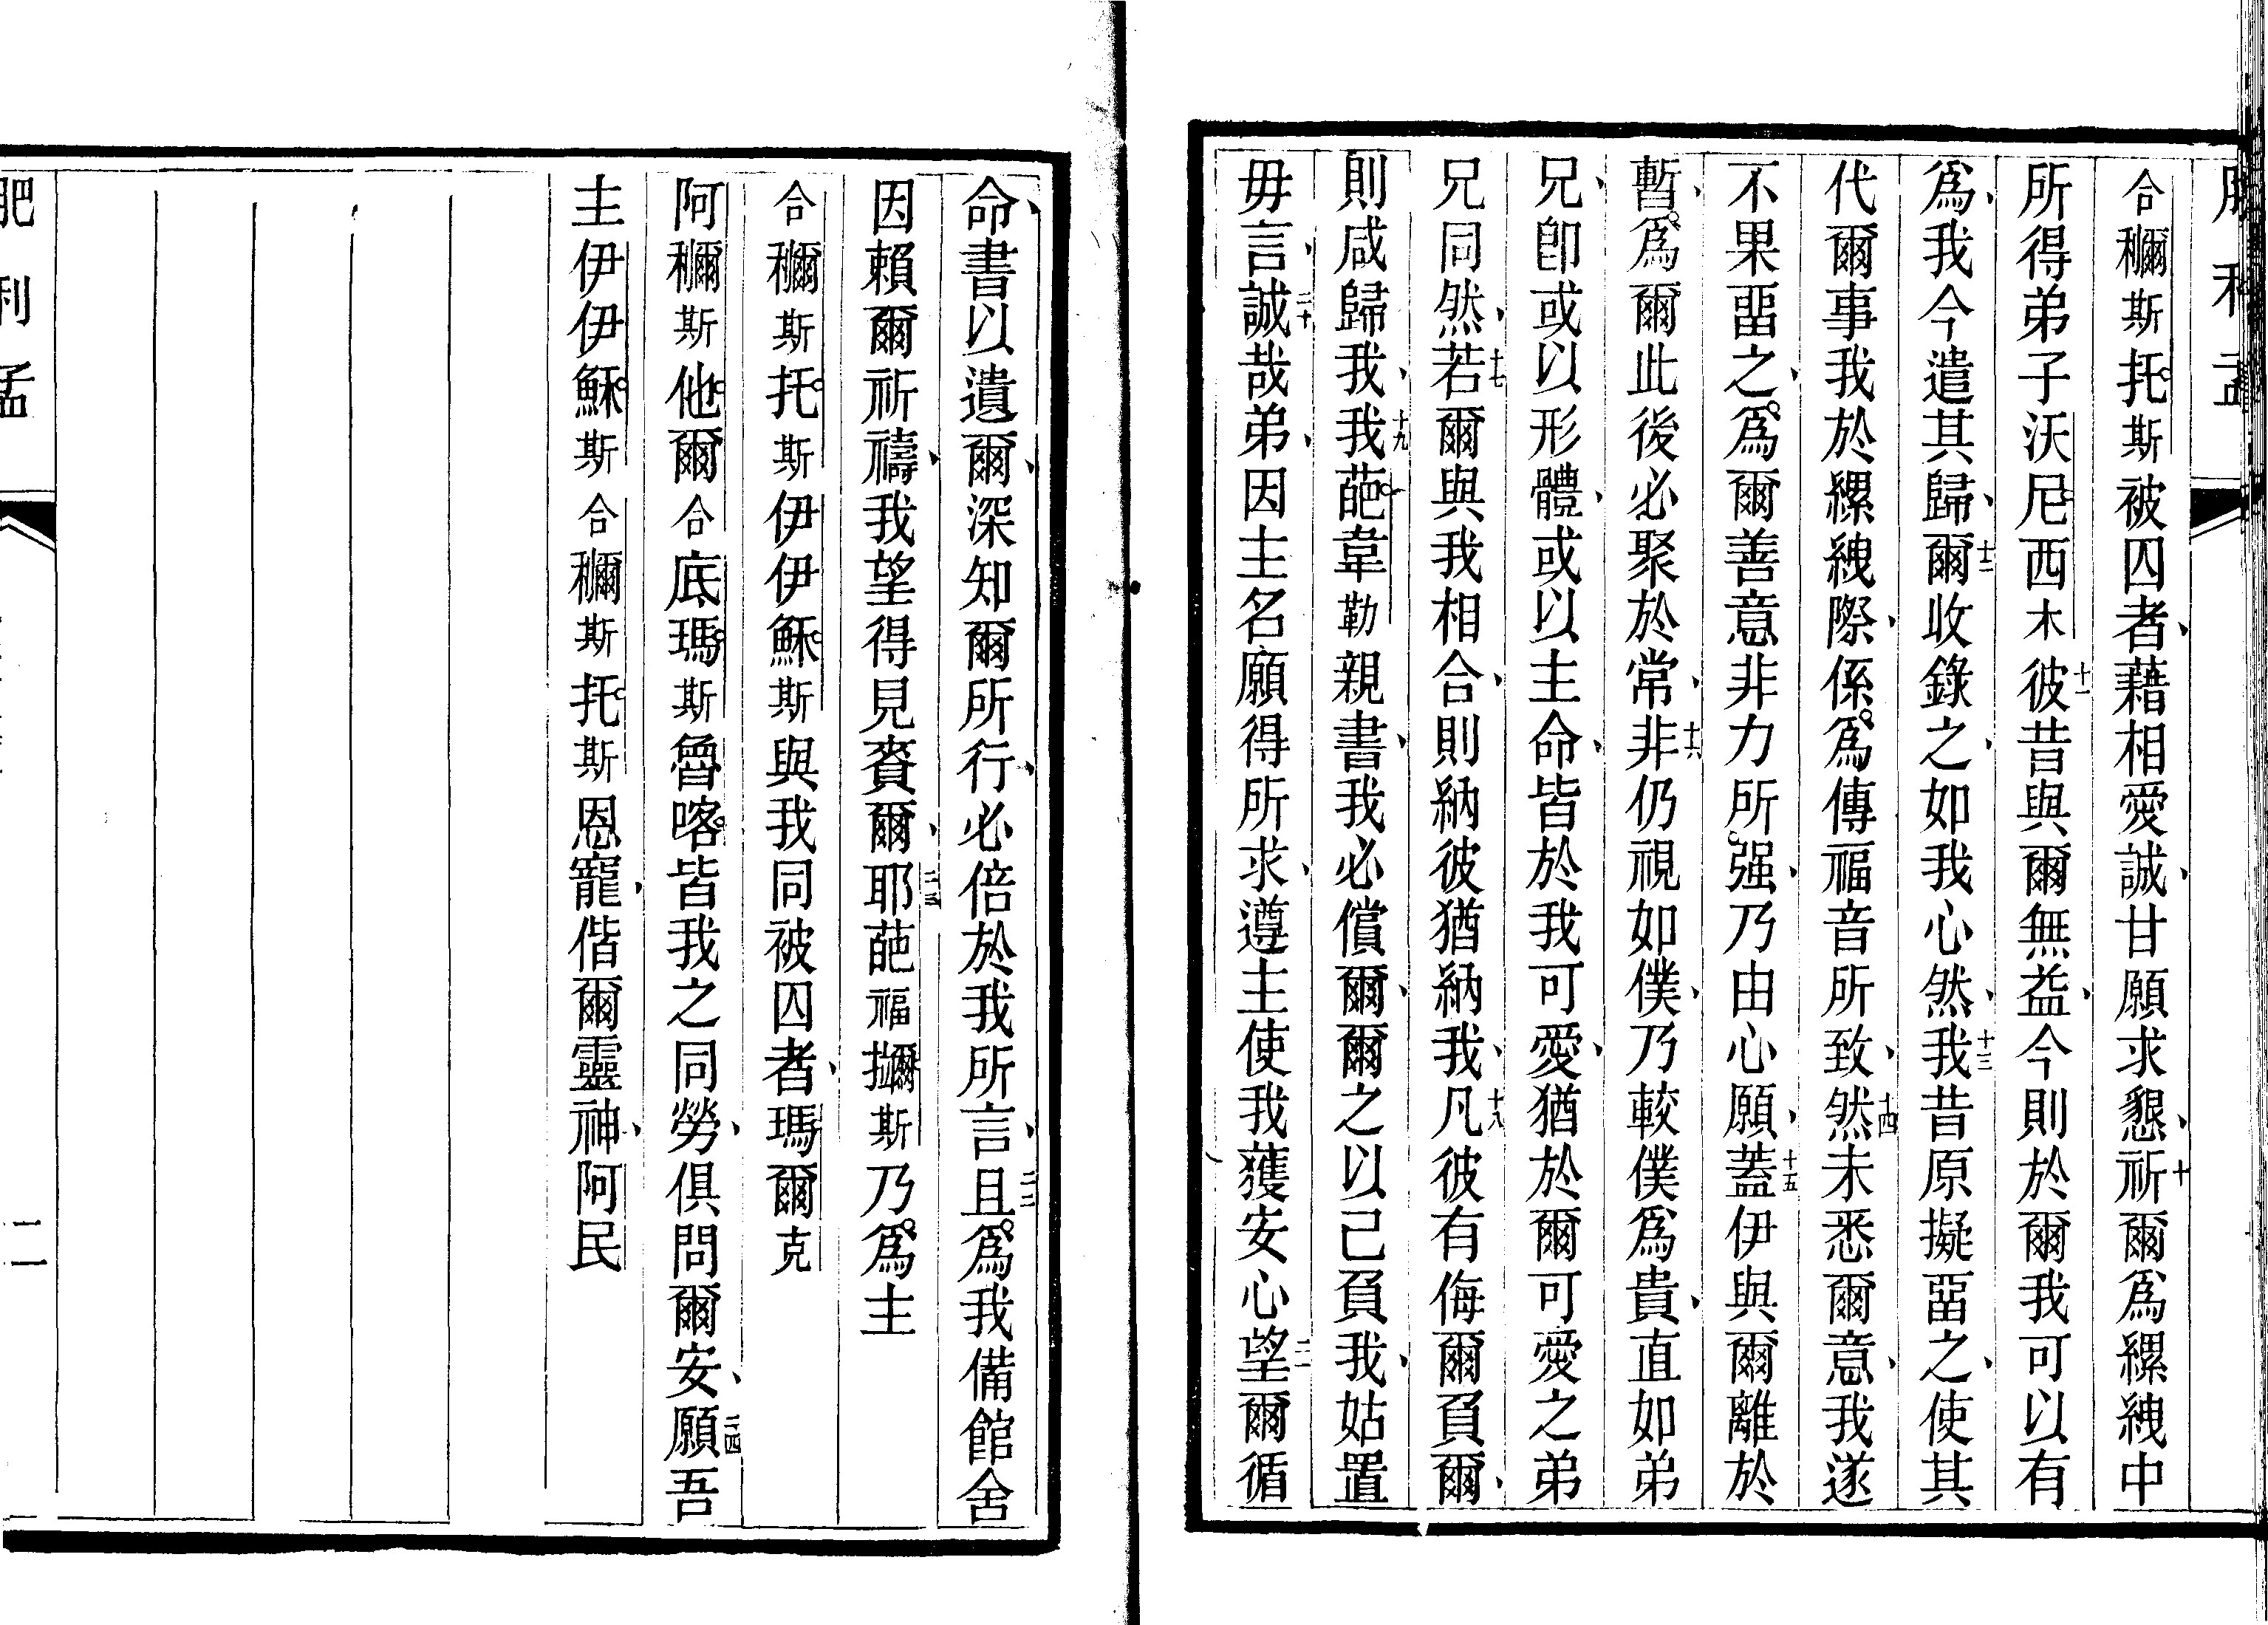 肥利孟
合穪斯托斯被囚者、藉相愛誠、甘願求懇、十祈爾爲縲絏中
所得弟子沃尼西木十一彼昔與爾無益、今則於爾我可以有
爲、我今遣其歸、十二爾收錄之、如我心然、十三我昔原擬畱之、使其
代爾事我於縲絏際、係爲傳福音所致、十四然未悉爾意、我遂
不果畱之、爲爾善意非力所强、乃由心願、十五蓋伊與爾離於
暫、爲爾此後必聚於常、十六非仍視如僕、乃較僕爲貴、直如弟
兄、卽或以形體、或以主命、皆於我可愛、猶於爾可愛之弟
兄同然、十七若爾與我相合、則納彼猶納我、十八凡彼有侮爾負爾、
則咸歸我、十九我葩韋勒親書、我必償爾、爾之以己負我、姑置
毋言、二十誠哉弟、因主名願得所求、遵主使我獲安心、二一望爾循
命、書以遺爾、深知爾所行、必倍於我所言、二二且爲我備館舍
因賴爾祈禱、我望得見賚爾、二三耶葩福擟斯乃爲主
合穪斯托斯伊伊穌斯與我同被囚者、瑪爾克
阿穪斯他爾合底瑪斯魯喀皆我之同勞、俱問爾安、二四願吾
主伊伊穌斯合穪斯托斯恩寵、偕爾靈神、阿民
肥利孟
二